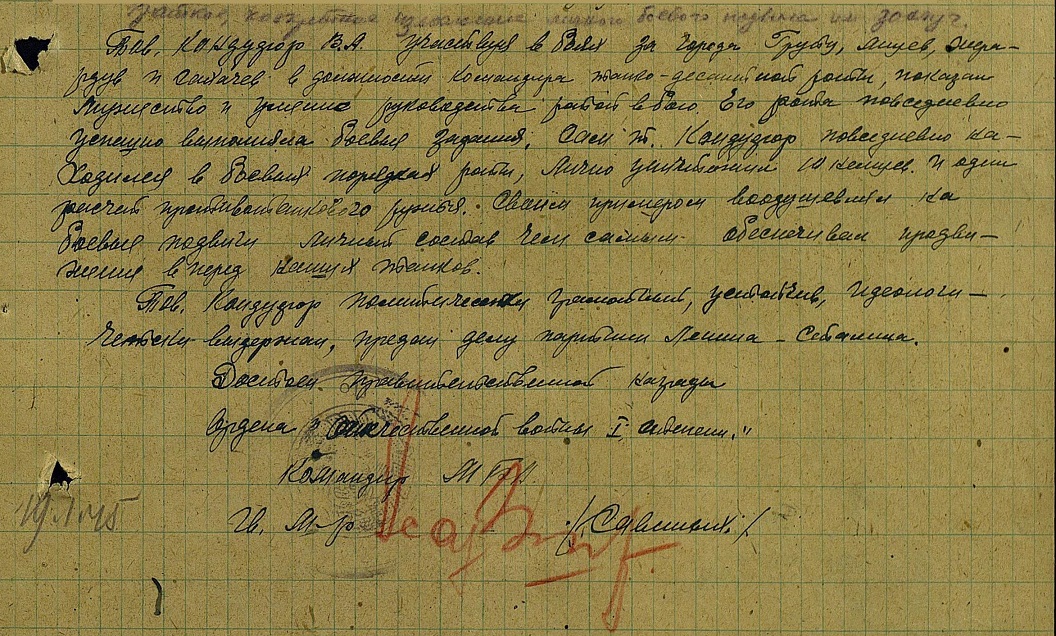 Краткое, конкретное изложение личного боевого подвига или заслуг.
Тов. Кондудюр В.А. участвуя в боях за города Груец, Мщев, Жира-
рдув и Сохачев в должности командира танко-десантной роты, показал
мужество и умение руководства ротой в бою. Его рота повседневно
успешно выполняла боевые задания. Сам т. Кондудюр повседневно на-
ходился в боевых порядках роты, лично уничтожил 10 немцев и один
расчет противотанкового ружья. Своим примером воодушевлял на
боевые подвиги личный состав чем самым обеспечивал продви-
жения вперед наших танков.
Тов. Кондудюр политически грамотный, устойчив, идеологи-
чески выдержан, предан делу партии Ленина - Сталина.
Достоен правительственной награды
Ордена "Отечественной войны I степени."
Командир МБА
Гв. М-р /Савицких/
19.1.45